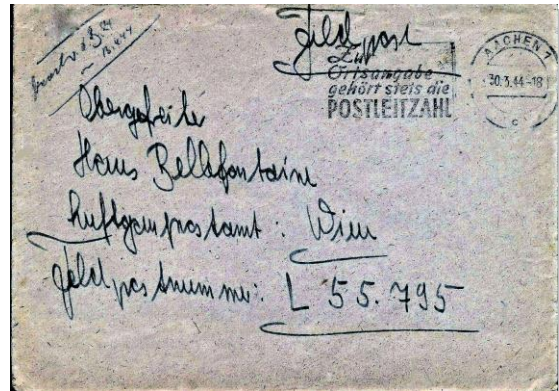 Feldpost
Zur
Ortsangabe
gehört stets die
POSTLEITZAHL
AACHEN 7
30.3.44-18
c
Obergefreiter
Hans Bellefontaine
Luftgaupostamt: Wien
Feldpostnummer: L 55.795